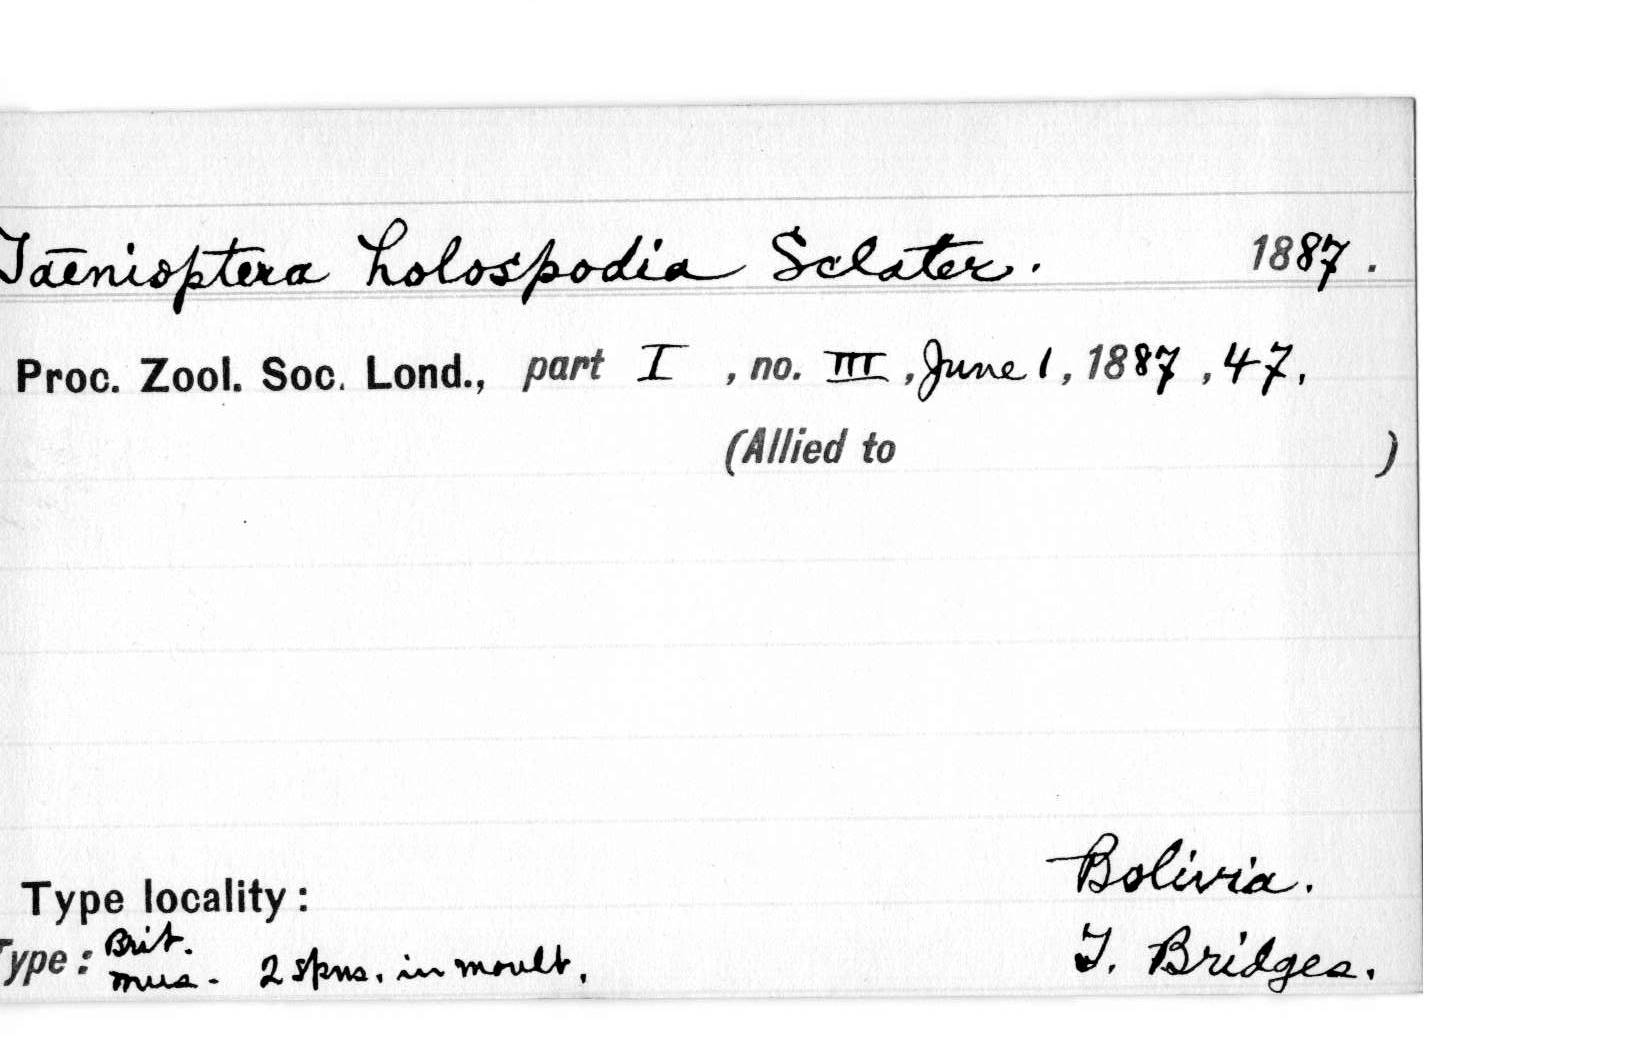 Taenioptera holospodia Sclater. 1887.
Proc. Zool. Soc. Lond., part I, no. III, June 1, 1887, 47.
(Allied to )
Bolivia.
Type locality:
Type: Brit. Mus. 2 spns. in moult. T. Bridges.